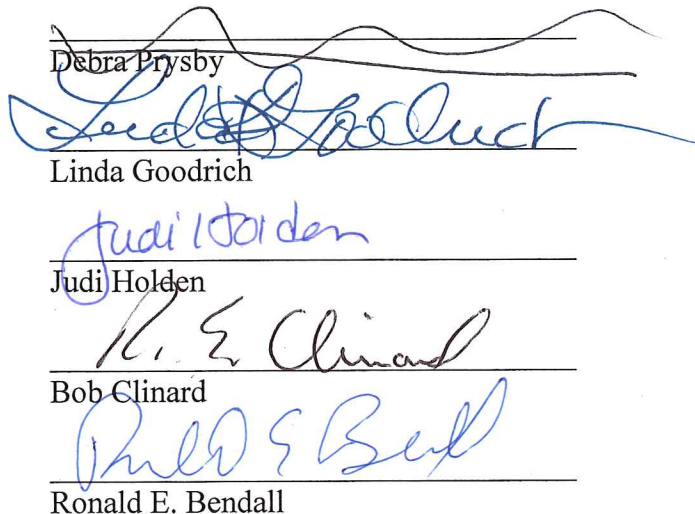 Debra Prysby
Linda Goodrich
Linda Goodrich
Judi Holden
Judi Holden
R. E. Clinard
Bob Clinard
Ronald E. Bendall